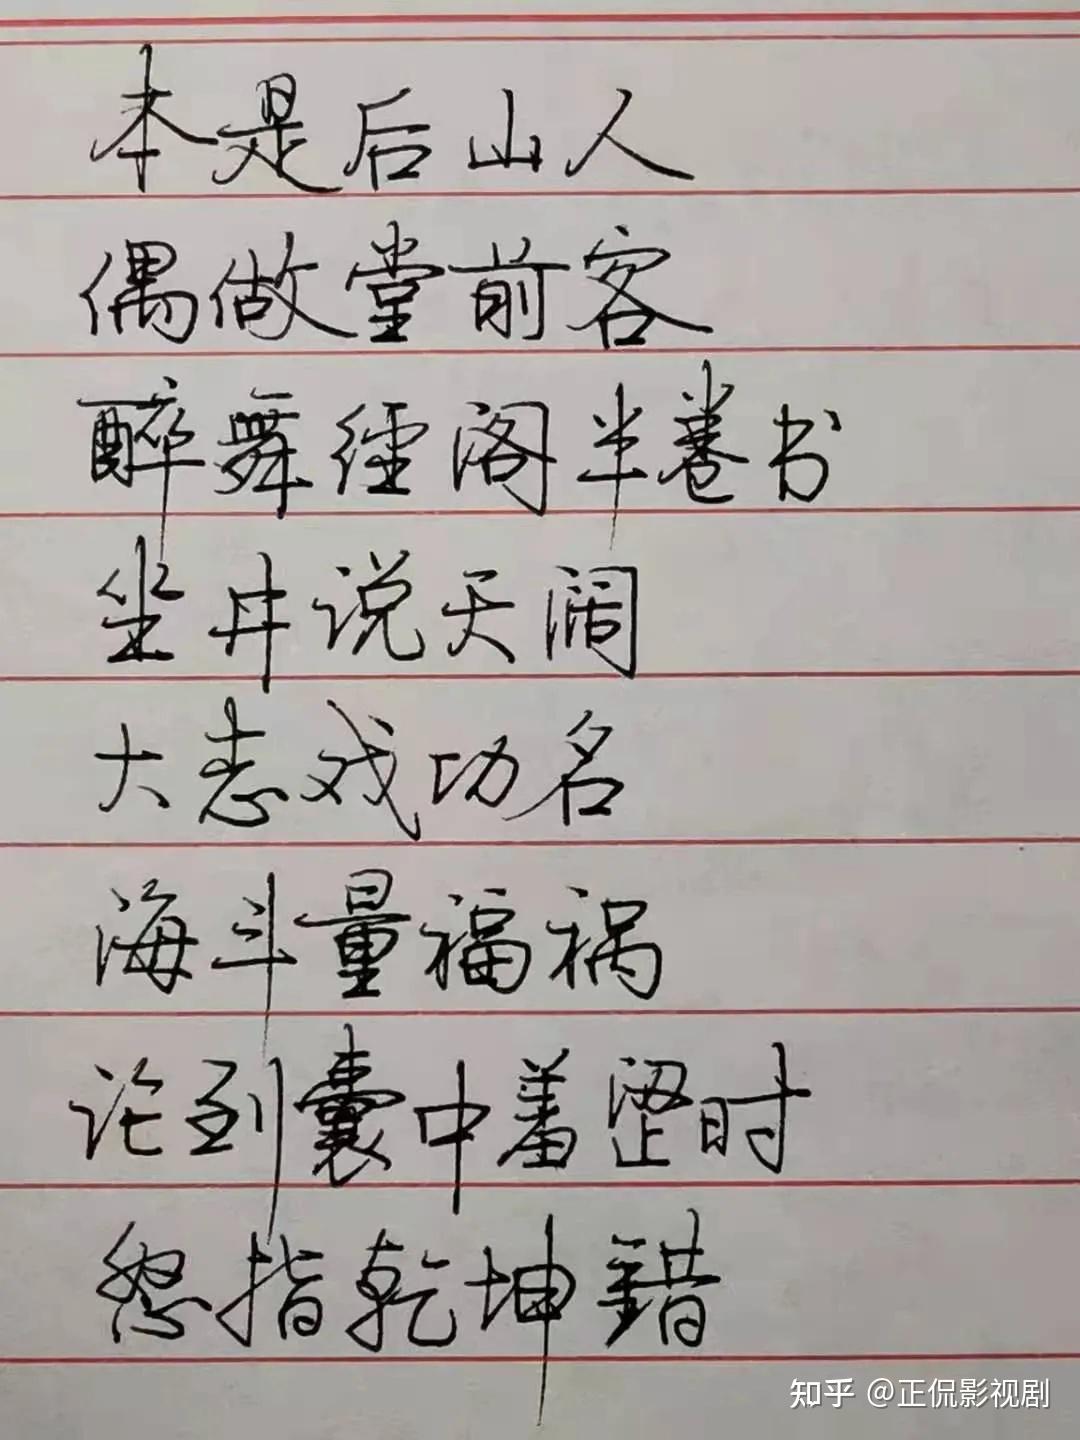 本是后山人
偶做堂前客
醉舞经阁半卷书
坐井说天阔
大志戏功名
海斗量福祸
论到囊中羞涩时
怒指乾坤错
知乎 @正侃影视剧